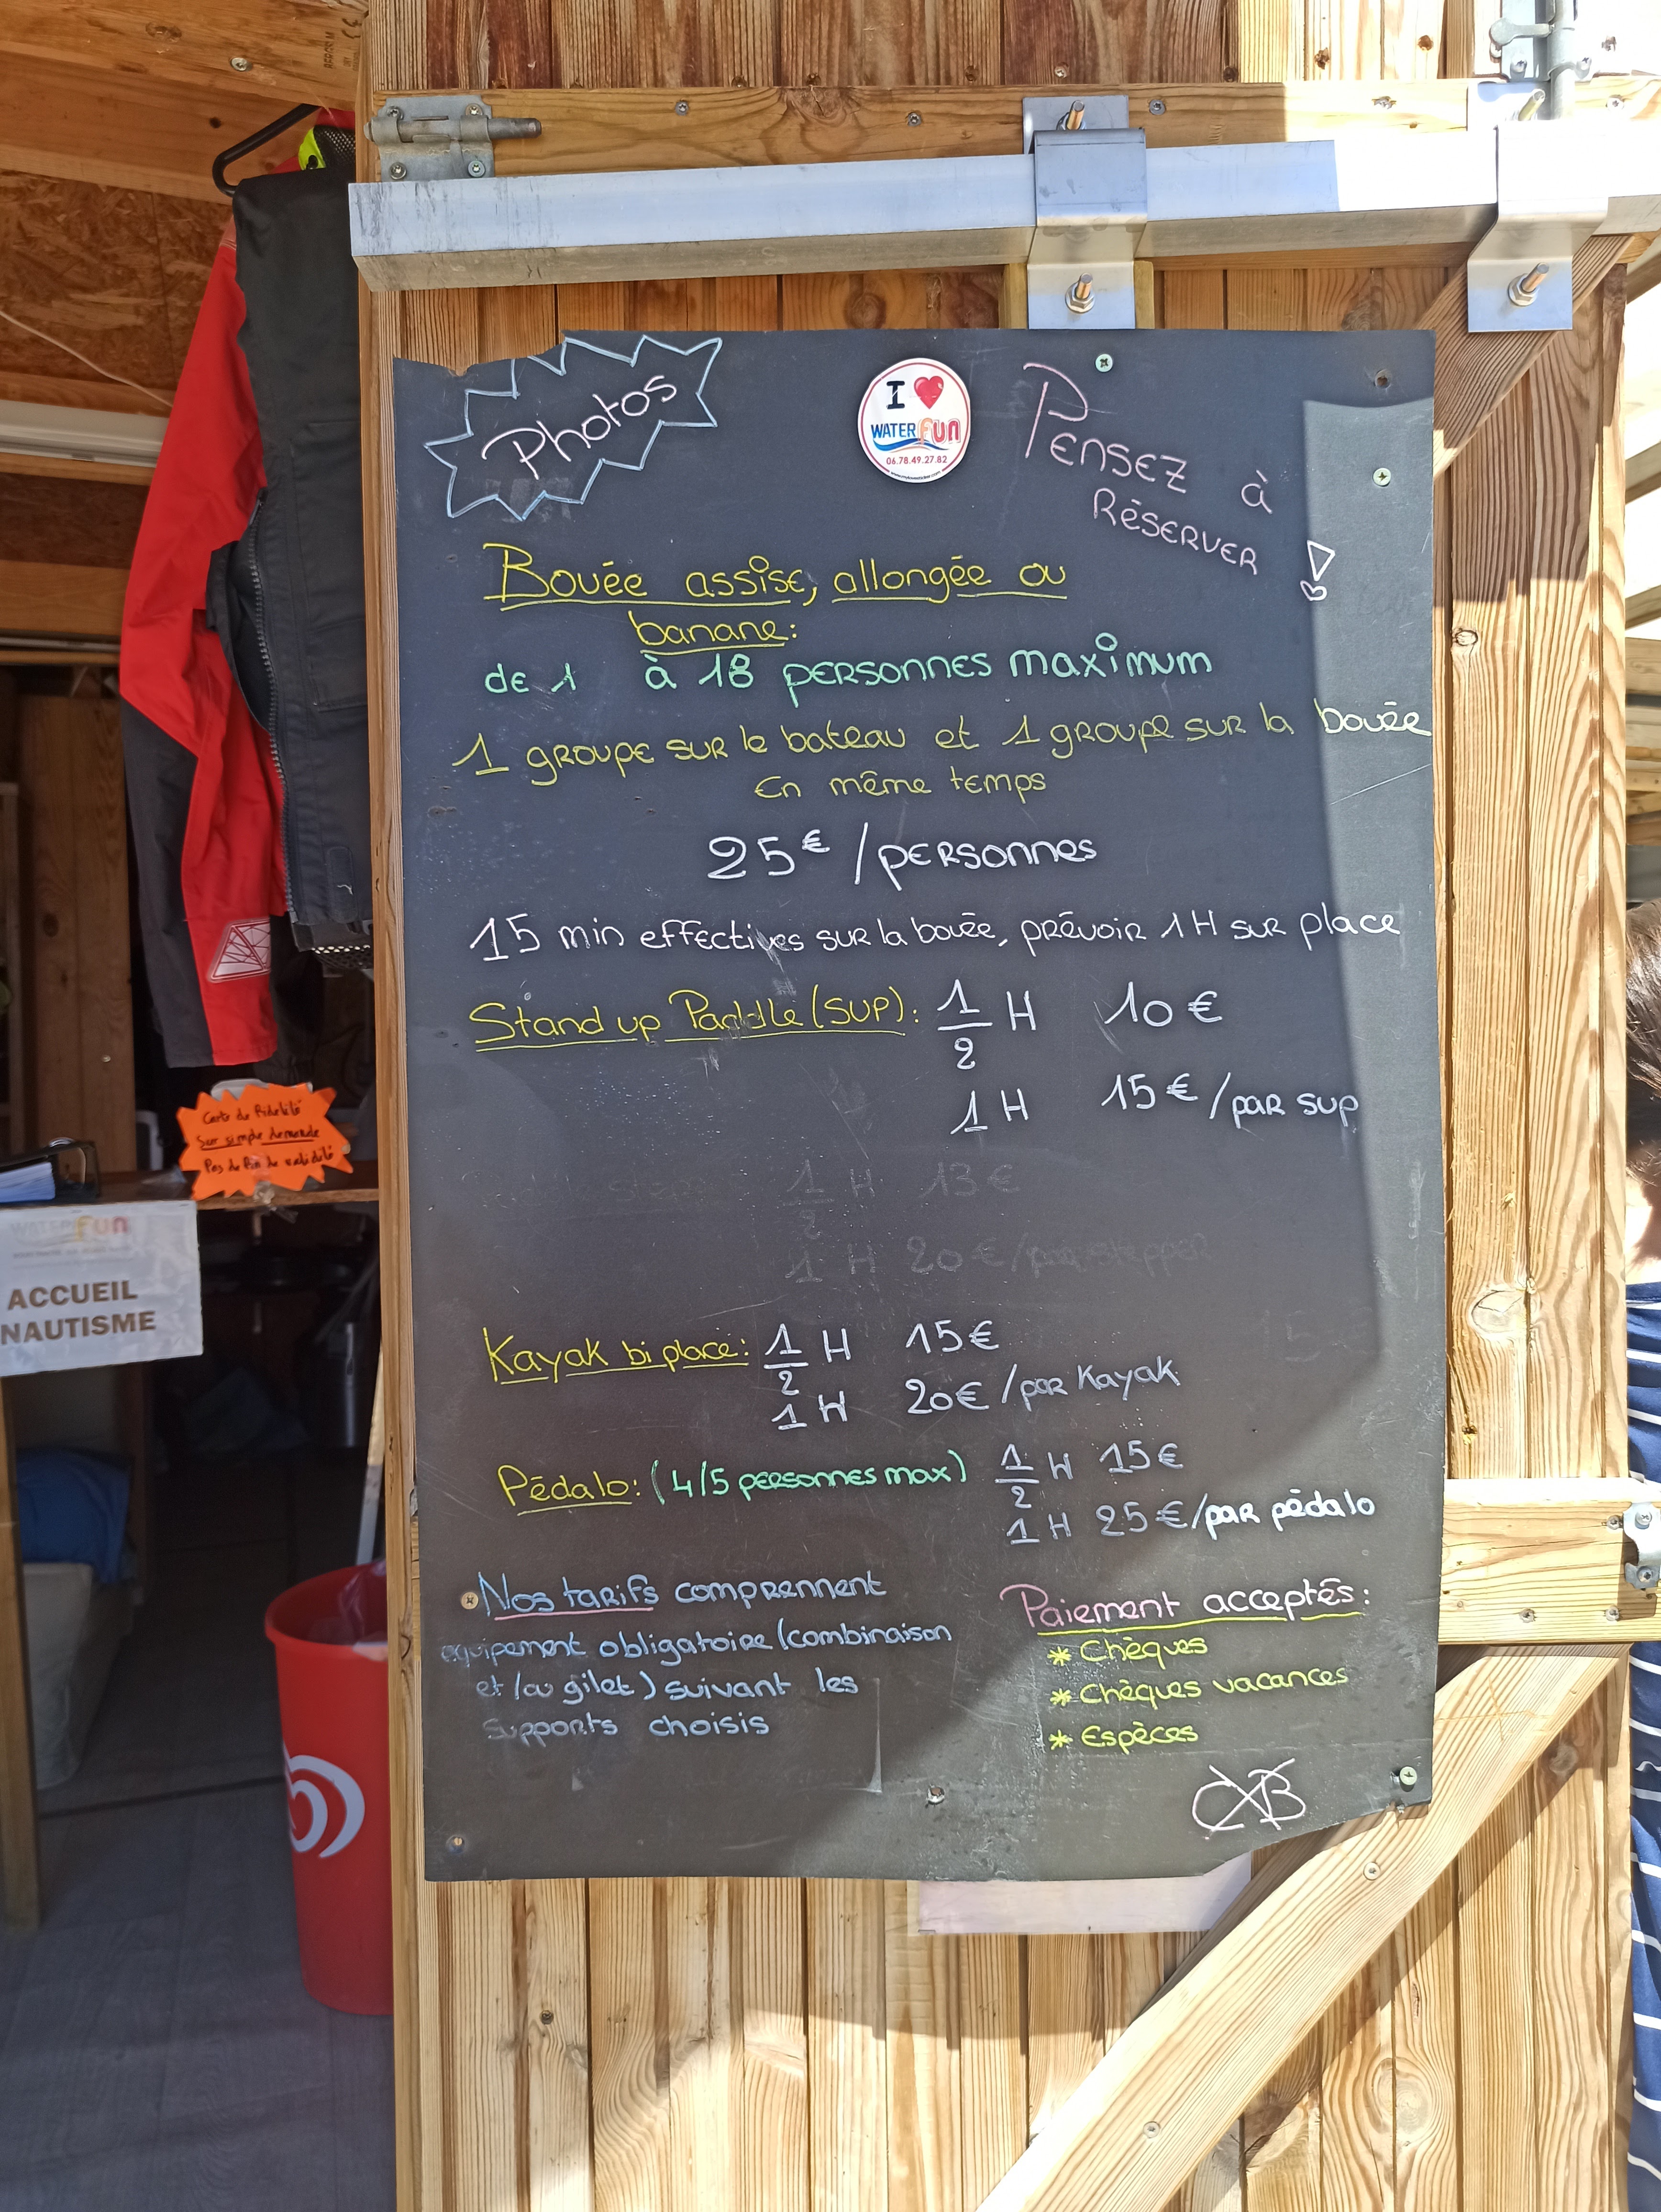 Photos
I ❤ WATER FUN
06.78.49.27.82
PENSEZ à
RÉSERVER !
Bouée assise, allongée ou
banane:
de 1 à 18 personnes maximum
1 groupe sur le bateau et 1 groupe sur la bouée
En même temps
25€ /personnes
15 min effectives sur la bouée, prévoir 1H sur place
Stand up Paddle (SUP): 1/2 H 10€
1H 15€/par sup
1/2 H 13€
1 H 20€/par stepper
Kayak bi place: 1/2 H 15€
1H 20€/par Kayak
Pédalo: (4/5 personnes max) 1/2 H 15€
1H 25€/par pédalo
Nos tarifs comprennent
equipement obligatoire (combinaison
et/ou gilet) suivant les
supports choisis
Paiement acceptés:
* Chèques
* Chèques vacances
* Espèces
CB
Carte de fidélité
Sur simple demande
Pas de fin de validité
WATER FUN
ACCUEIL
NAUTISME